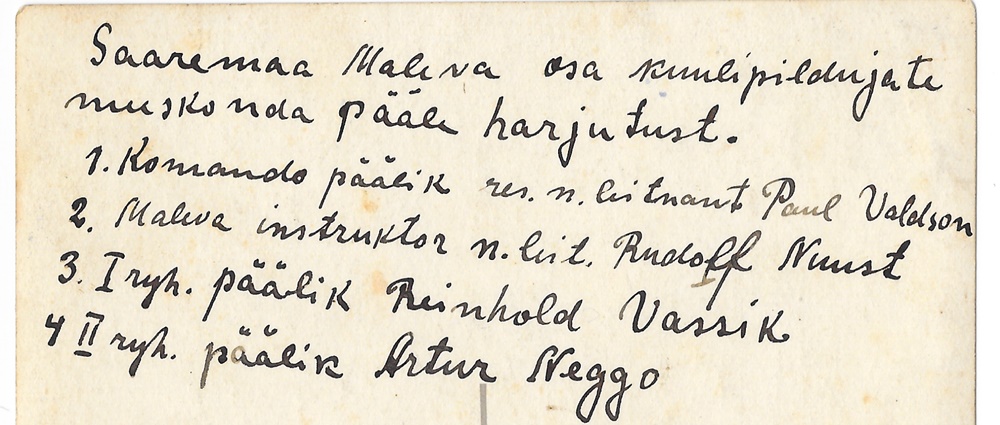 Saaremaa Maleva osa kuulipildujate
meeskonda pääle harjutust.
1. Komando päälik res. n. leitnant Paul Valdson
2. Maleva instruktor n. leit. Rudolf Nuust
3. I ryh. päälik Reinhold Vassik
4 II ryh. päälik Artur Neggo